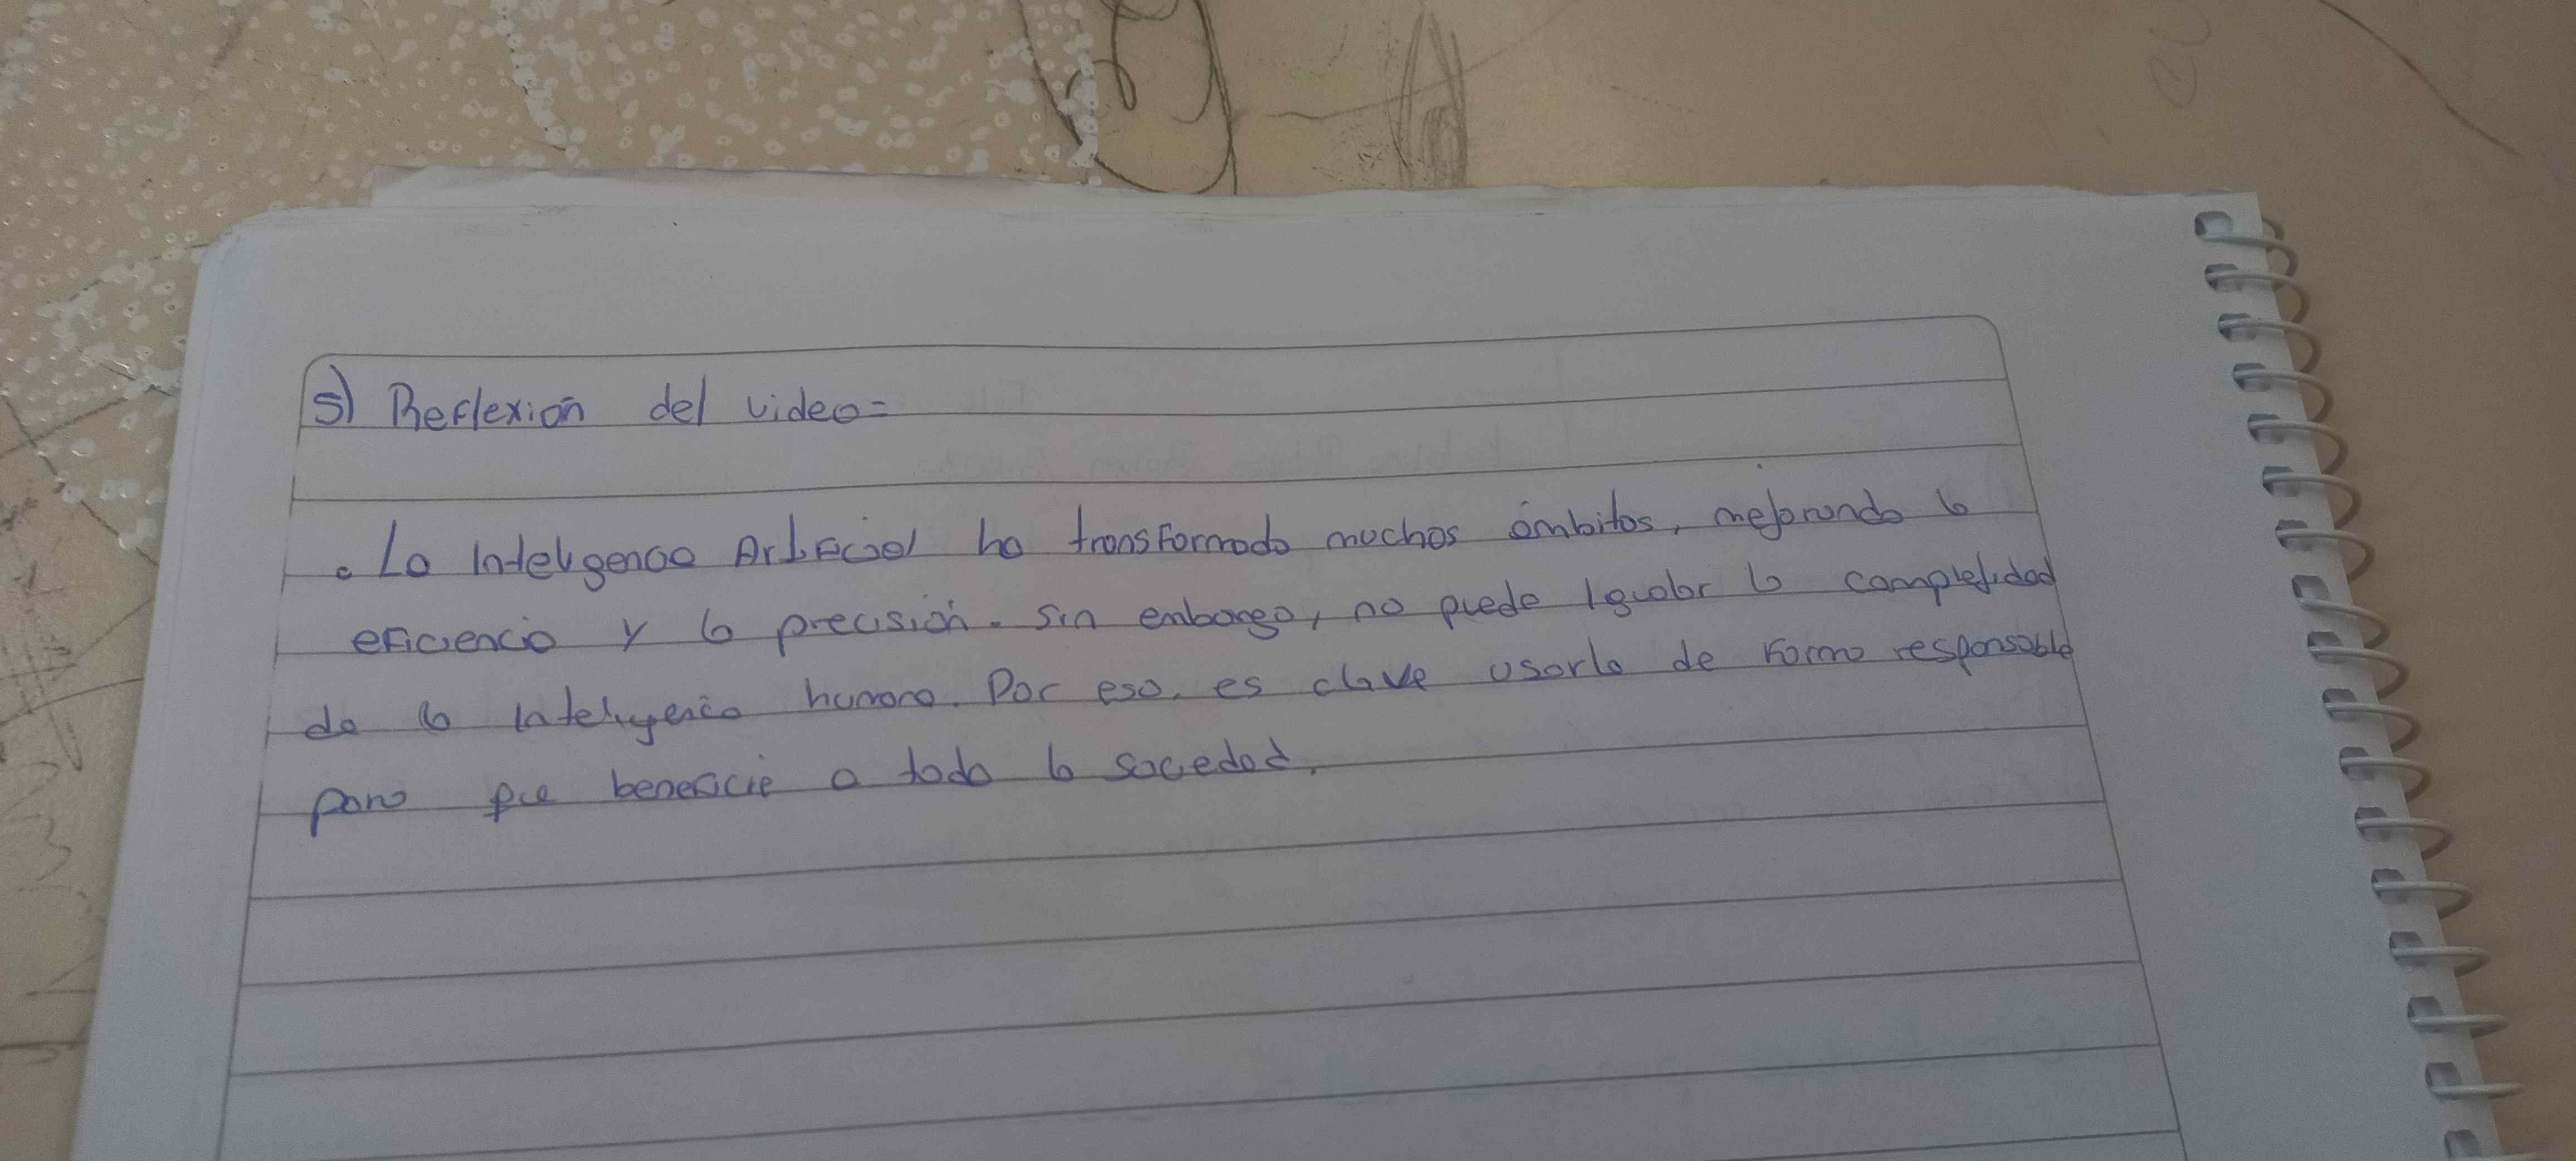 5) Reflexión del video=
. La Inteligencia Artificial ha transformado muchos ámbitos, mejorando la
eficiencia y la precisión. Sin embargo, no puede Igualar la complejidad
de la Inteligencia humana. Por eso, es clave usarla de forma responsable
para que beneficie a toda la sociedad.